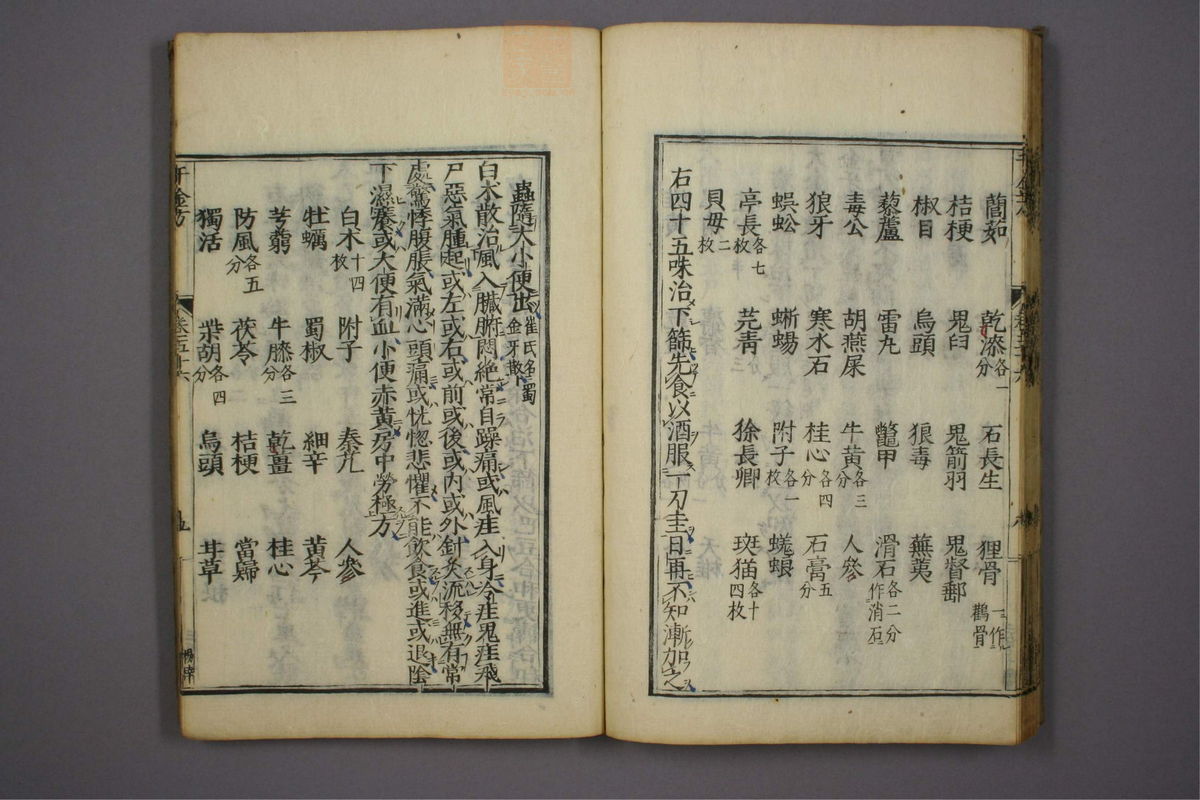 藺茹 乾漆各一分 石長生 狸骨一作鸛骨
桔梗 鬼臼 鬼箭羽 鬼督郵
椒目 烏頭 狼毒 蕪荑
藜蘆 雷九 鼈甲 滑石各二分作消石
毒公 胡燕屎 牛黄各三分 人參
狼牙 寒水石 桂心各四分 石膏五分
蜈蚣 蜥蜴 附子各一枚 蜣蜋
亭長各七枚 芫青 徐長卿 斑猫各十四枚
貝母二枚
右四十五味治下篩先食以酒服一刀圭日再不知漸加之
蟲隨大小便出崔氏名蜀金牙散
白术散治風入臟腑悶絶常自躁痛或風疰入身冷疰鬼疰飛
尸惡氣腫起或左或右或前或後或内或外針灸流移無有常
處驚悸腹脹氣滿心頭痛或恍惚悲懼不能飲食或進或退陰
下濕痿或大便有血小便赤黄房中勞極方
白术十四枚 附子 秦艽 人參
牡蠣 蜀椒 細辛 黄芩
芎藭 牛膝各三分 乾薑 桂心
防風各五分 茯苓 桔梗 當歸
獨活 柴胡各四分 烏頭 甘草
千金方 卷五十六 五